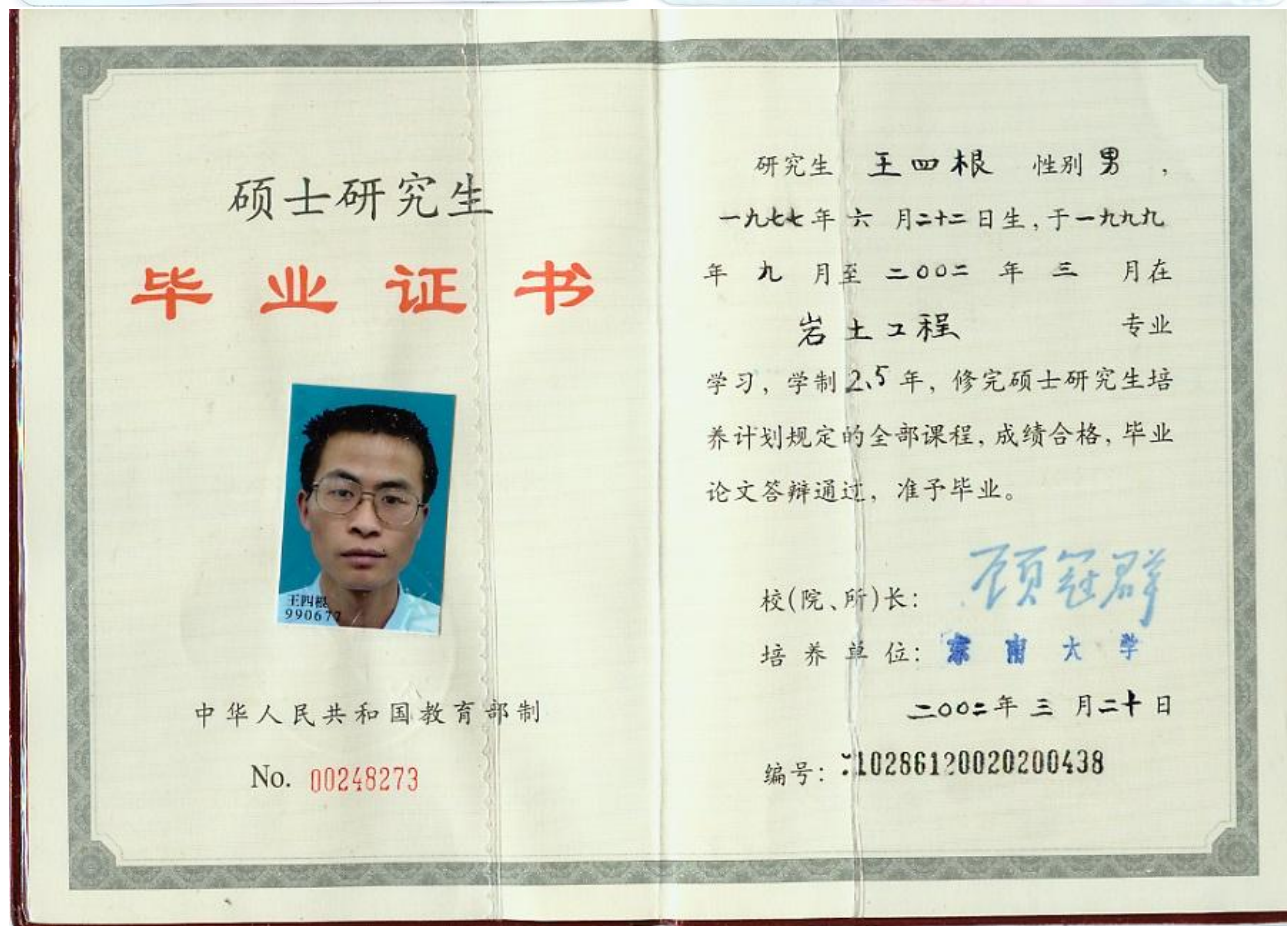 硕士研究生
毕业证书
王四根
990677
中华人民共和国教育部制
No. 00248273
研究生 王四根 性别 男，
一九七七年 六 月二十二日生，于一九九九
年 九 月至 二〇〇二 年 三 月在
岩土工程 专业
学习，学制 2.5 年，修完硕士研究生培
养计划规定的全部课程，成绩合格，毕业
论文答辩通过，准予毕业。
校(院、所)长： 顾冠群
培养单位： 东南大学
二〇〇二年 三 月二十日
编号：10286120020200438